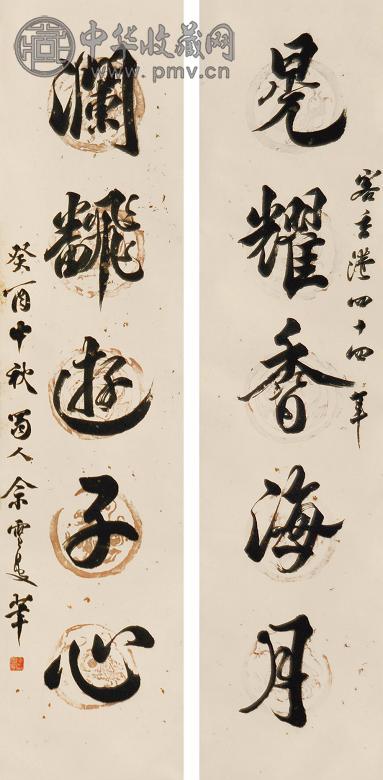 中华收藏网
www.pmv.cn
客香港四十四年
晃耀香海月
瀾飜遊子心
癸酉中秋蜀人佘雪曼筆